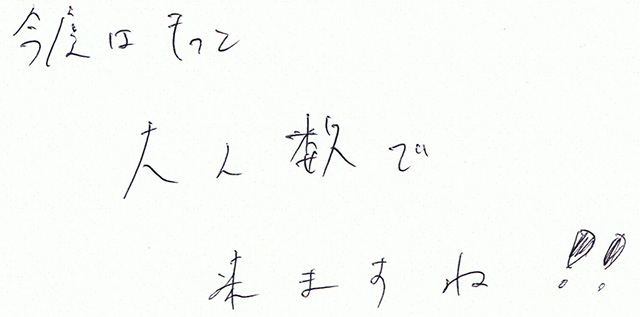 今度はもっと
大人数で
来ますね!!